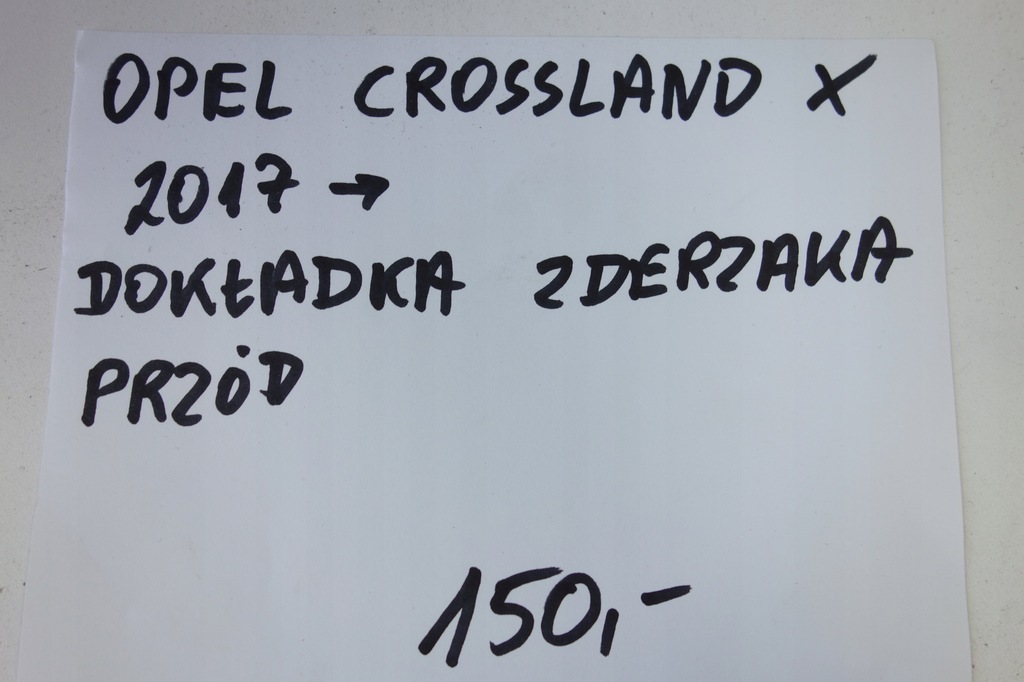 OPEL CROSSLAND X
2017 →
DOKŁADKA ZDERZAKA
PRZÓD
150,-